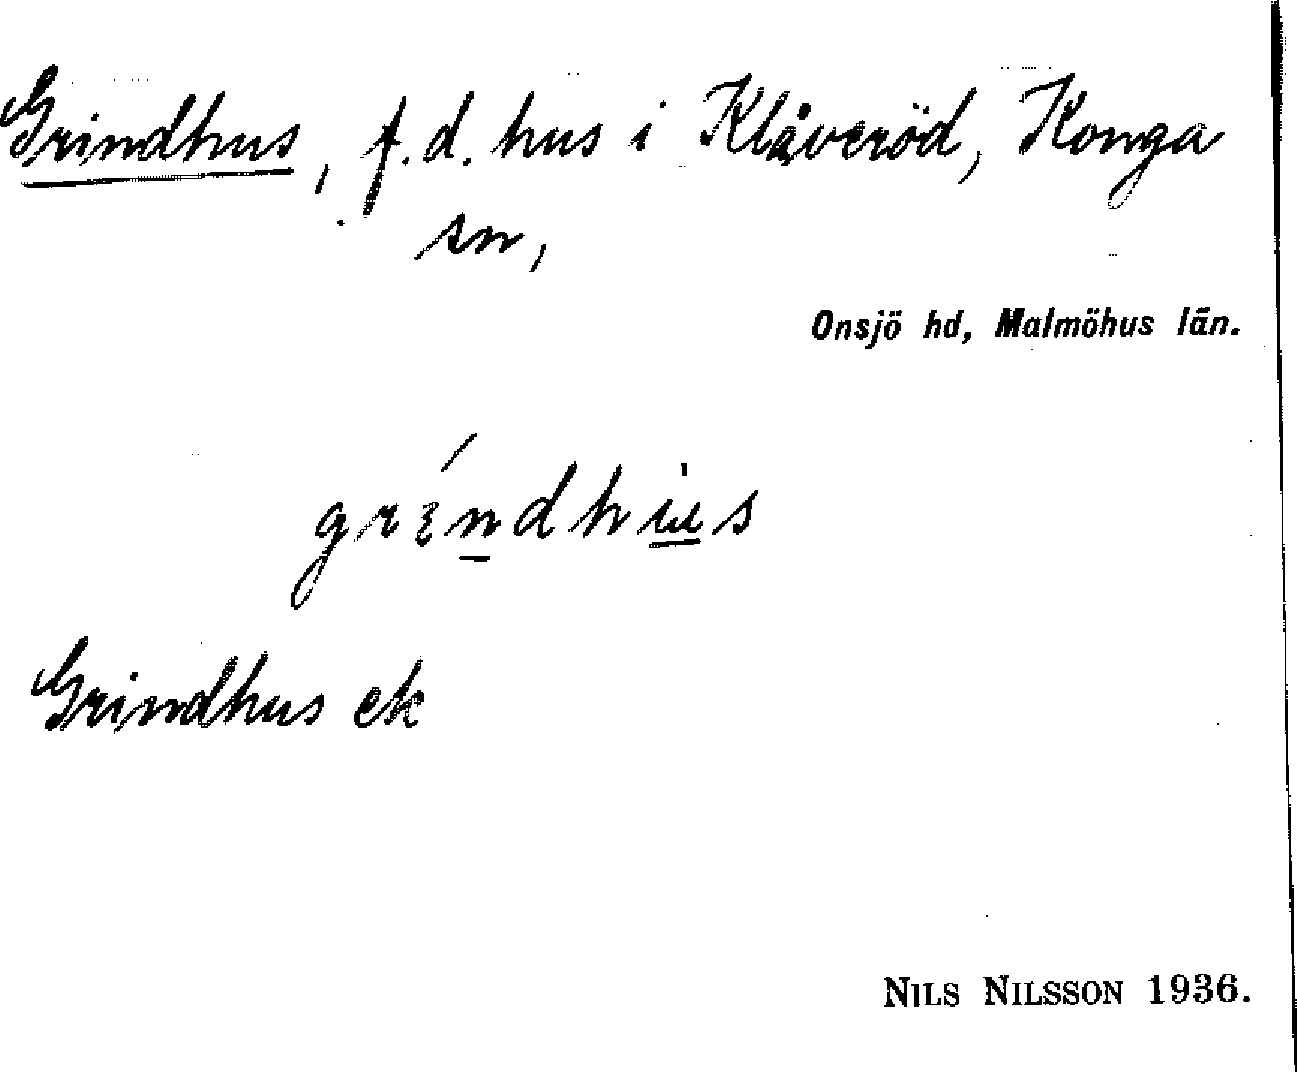 Grindhus, f.d. hus i Klåveröd, Konga
sn,
Onsjö hd, Malmöhus län.
Grindhus ek
NILS NILSSON 1936.